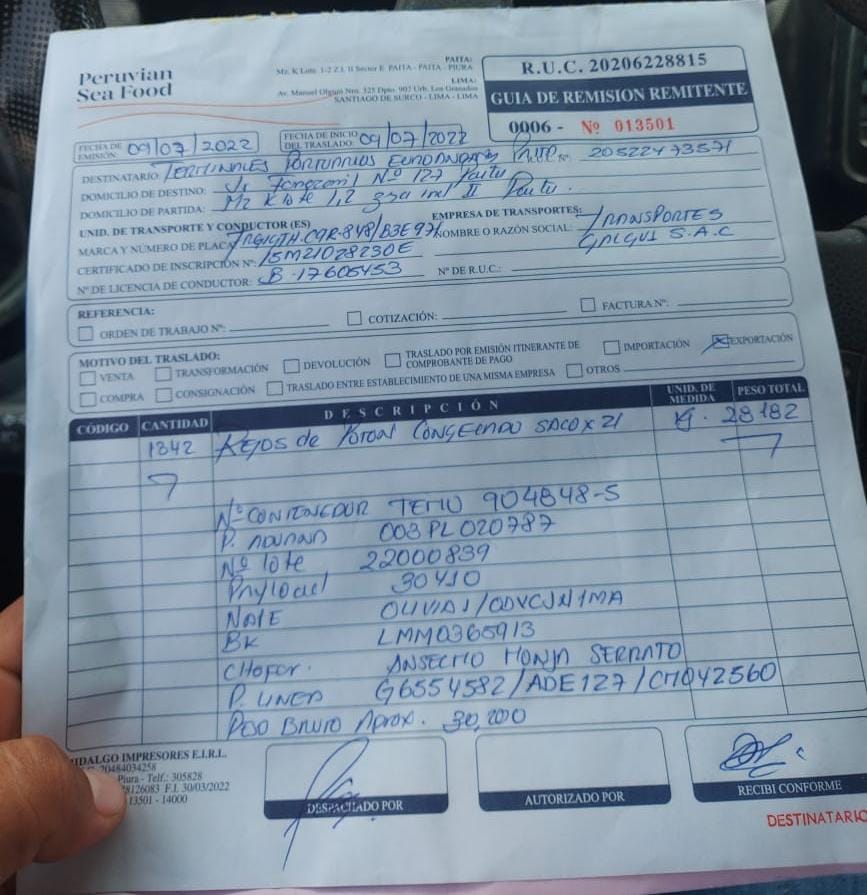 Peruvian
Sea Food
PAITA:
Mz. K Lote. 1-2 Z.I. II Sector E PAITA - PAITA - PIURA
LIMA:
Av. Manuel Olguin Nro. 325 Dpto. 907 Urb. Los Granados
SANTIAGO DE SURCO - LIMA - LIMA
R.U.C. 20206228815
GUIA DE REMISION REMITENTE
0006 - Nº 013501
FECHA DE EMISIÓN: 09/07/2022
FECHA DE INICIO DEL TRASLADO: 09/07/2022
DESTINATARIO: TERMINALES PORTUARIOS EUROANDINOS Nº: 20522473571
DOMICILIO DE DESTINO: Nº 127 Paita
DOMICILIO DE PARTIDA: Mz K lote 1,2 II Paita.
UNID. DE TRANSPORTE Y CONDUCTOR (ES)
EMPRESA DE TRANSPORTES:
MARCA Y NÚMERO DE PLACA:
NOMBRE O RAZÓN SOCIAL: TRANSPORTES
S.A.C
CERTIFICADO DE INSCRIPCIÓN Nº: 15M21028230E
Nº DE LICENCIA DE CONDUCTOR: B-17605453
Nº DE R.U.C.:
REFERENCIA:
ORDEN DE TRABAJO Nº: COTIZACIÓN: FACTURA Nº:
MOTIVO DEL TRASLADO:
VENTA TRANSFORMACIÓN DEVOLUCIÓN TRASLADO POR EMISIÓN ITINERANTE DE COMPROBANTE DE PAGO IMPORTACIÓN EXPORTACIÓN
COMPRA CONSIGNACIÓN TRASLADO ENTRE ESTABLECIMIENTO DE UNA MISMA EMPRESA OTROS
CÓDIGO CANTIDAD DESCRIPCIÓN UNID. DE MEDIDA PESO TOTAL
1342 Rejos de Poton Congelado saco x 21 Kg. 28182
Nº CONTENEDOR TEMU 904848-5
P. ADUANA 003PL020787
Nº lote 22000839
Payload 30410
NAVE
BK LMM0365913
CHOFER. MONJA SERRATO
P. LINEA G6554582/ADE127/CM042560
Peso Bruto Aprox. 30,200
HIDALGO IMPRESORES E.I.R.L.
20484034258
Piura - Telf.: 305828
F.I. 30/03/2022
13501 - 14000
DESPACHADO POR
AUTORIZADO POR
RECIBI CONFORME
DESTINATARIO